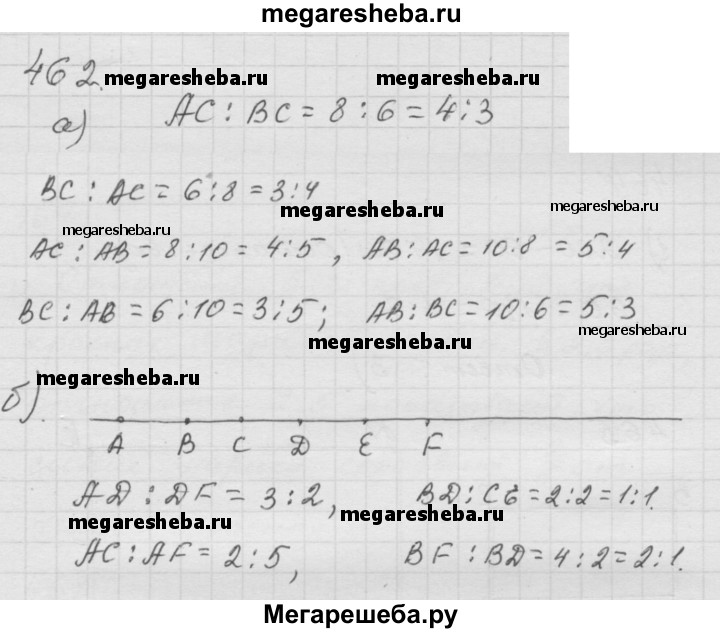 megaresheba.ru
462.
megaresheba.ru megaresheba.ru
а) AC : BC = 8 : 6 = 4 : 3
BC : AC = 6 : 8 = 3 : 4
megaresheba.ru megaresheba.ru
megaresheba.ru
AC : AB = 8 : 10 = 4 : 5, AB : AC = 10 : 8 = 5 : 4
BC : AB = 6 : 10 = 3 : 5; AB : BC = 10 : 6 = 5 : 3
megaresheba.ru megaresheba.ru
megaresheba.ru
б)
A B C D E F
AD : DF = 3 : 2, BD : CE = 2 : 2 = 1 : 1.
megaresheba.ru megaresheba.ru
AC : AF = 2 : 5, BF : BD = 4 : 2 = 2 : 1.
Мегарешеба.ру